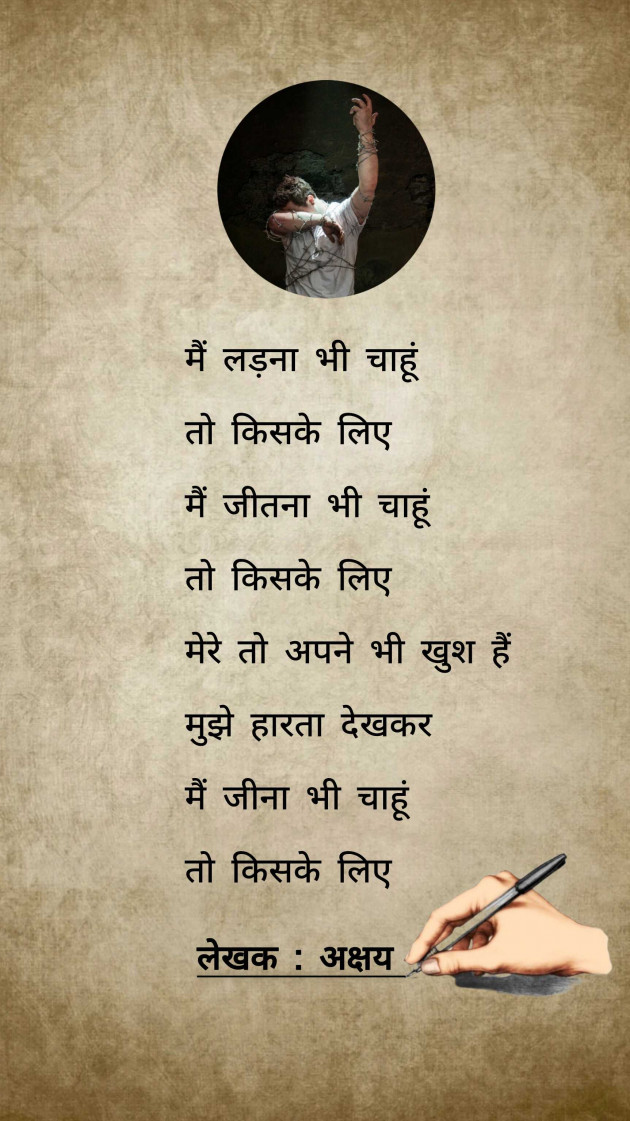 मैं लड़ना भी चाहूं
तो किसके लिए
मैं जीतना भी चाहूं
तो किसके लिए
मेरे तो अपने भी खुश हैं
मुझे हारता देखकर
मैं जीना भी चाहूं
तो किसके लिए
लेखक : अक्षय